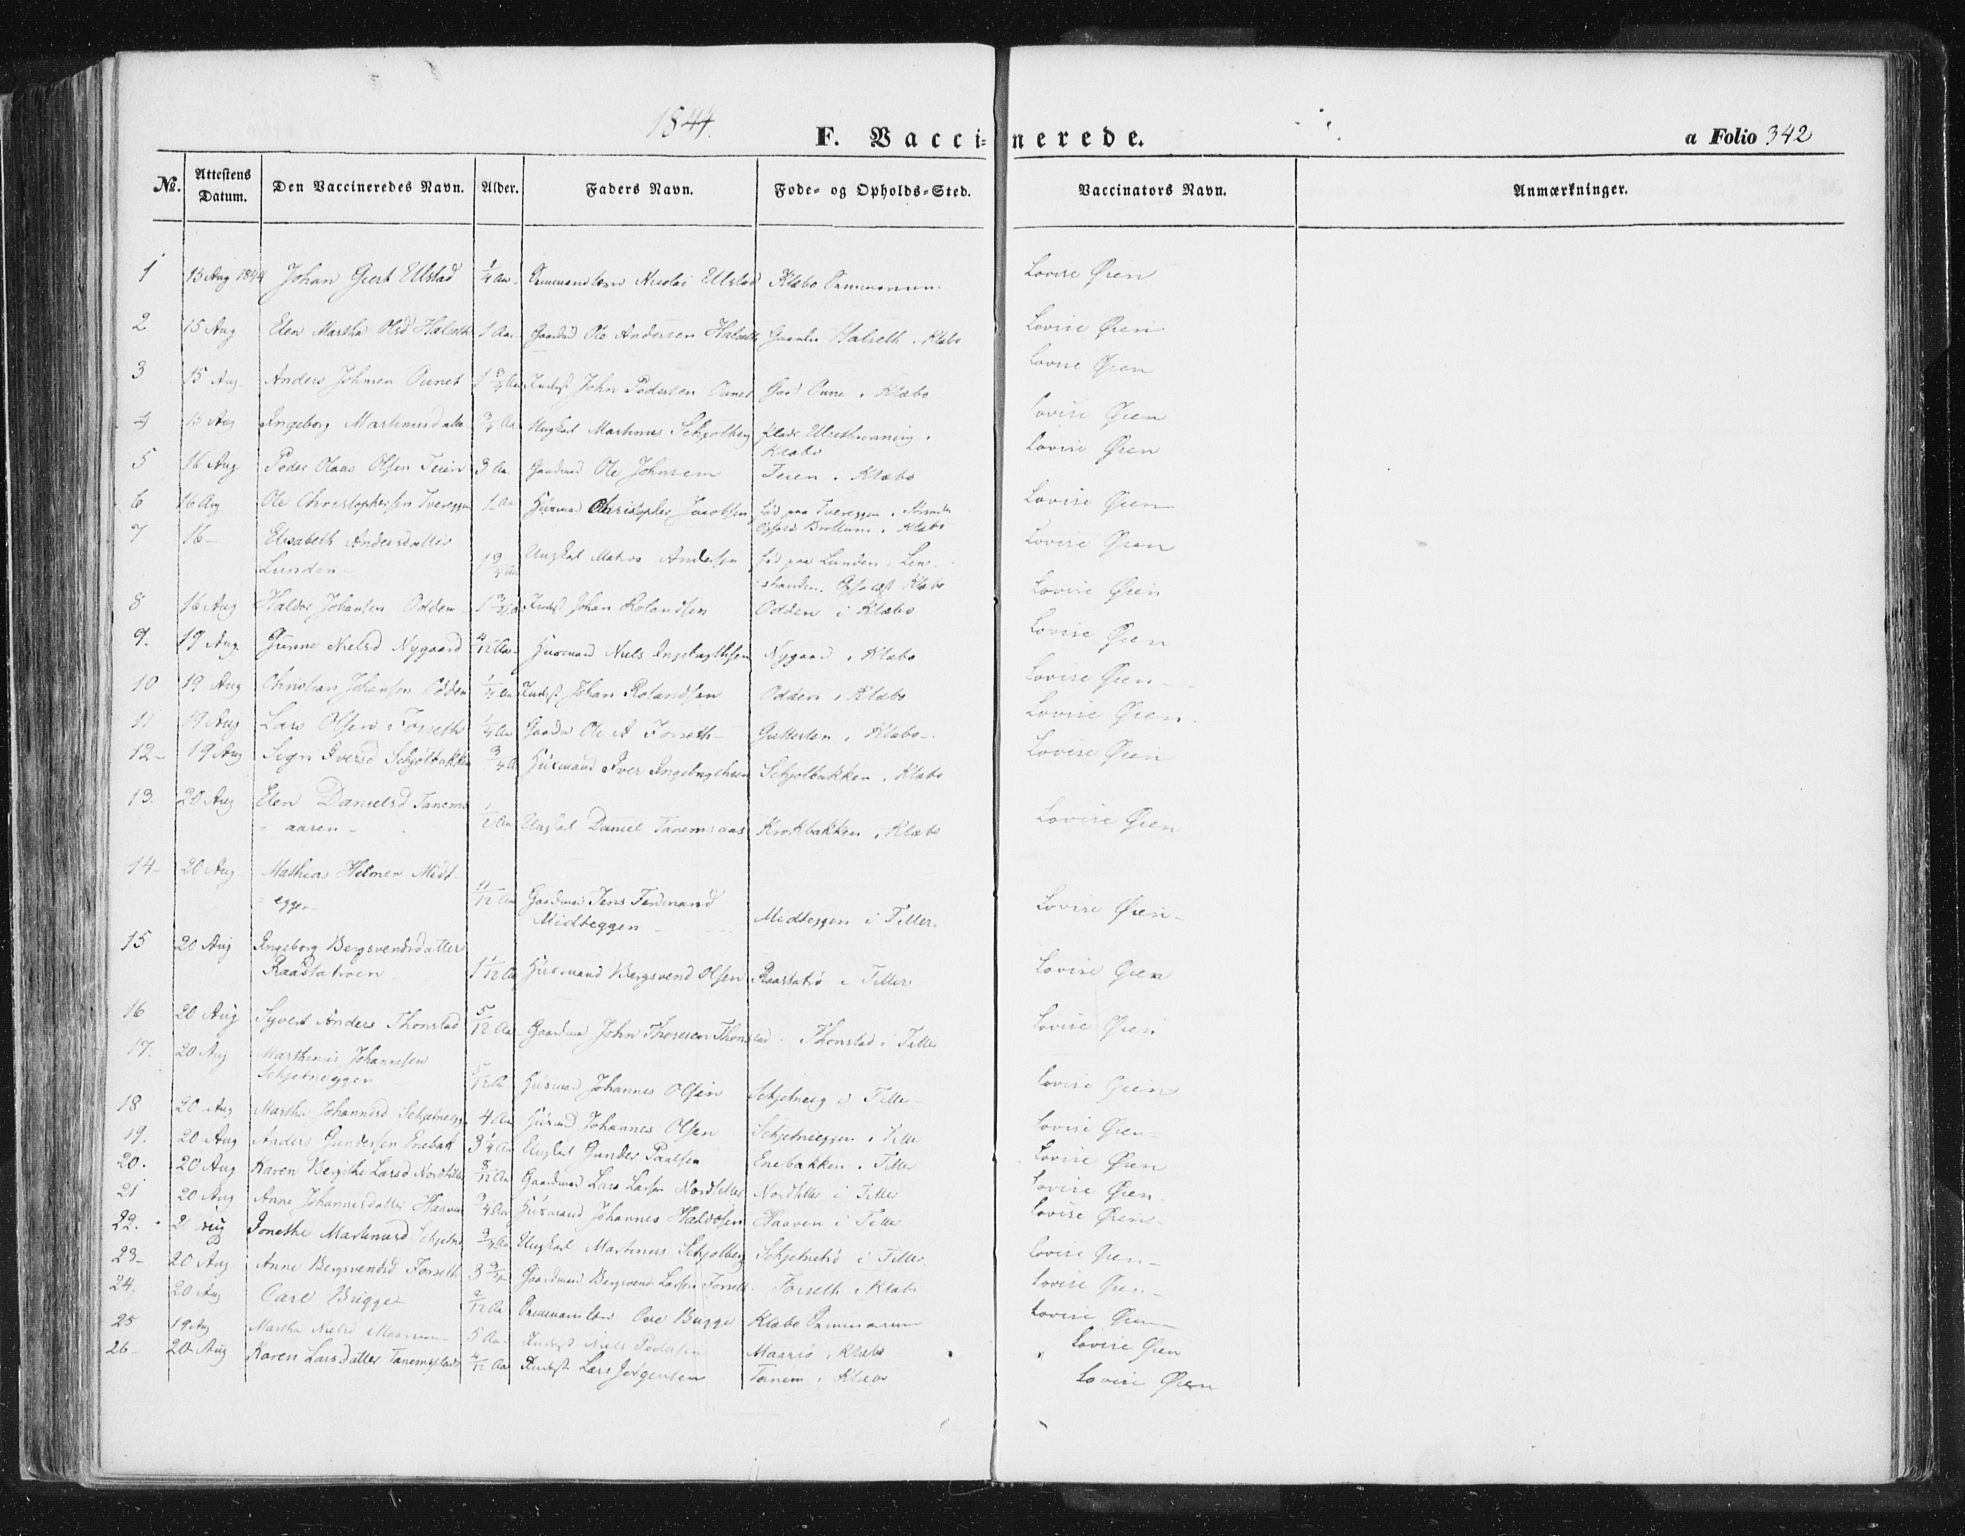 1844.
F. Vaccinerede.
a Folio 342
No. Attestens Datum. Den Vaccineredes Navn. Alder. Faders Navn. Føde- og Opholds-Sted. Vaccinators Navn. Anmærkninger.
1 15 Aug 1844 Johan Ellstad 1/4 Aa Nicolai Ellstad Klæbo Lovise Øien
2 15 Aug Elen Martha Olsd Halseth 1 Aa Gaardmd Ole Andersen Halseth Halseth i Klæbo Lovise Øien
3 15 Aug Anders Johnsen Ounet 1 3/4 Aa Inderst John Pedersen Ounet Gaard Oune i Klæbo Lovise Øien
4 15 Aug Ingeborg Martinusdatter 3/4 Aa Ungkal Martinus Schjolberg
Klæbo Lovise Øien
5 16 Aug Peder Olaus Olsen Teien 3 Aa Gaardmd Ole Johnsen Teien i Klæbo Lovise Øien
6 16 Aug Ole Christophersen Tvereggen 1 Aa Husmd Christopher Jacobsen fød paa Tvereggen i Strinden
Opholdt Brottum i Klæbo Lovise Øien
7 16 - Elisabeth Andersdatter
Lunden - 1 3/4 Aa Ungkal Andersen fød paa Lunden i Lein-
stranden. Opholdst Klæbo Lovise Øien
8 16 Aug Haldor Johansen Odden 1 3/4 Aa Inderst Johan Rolandsen Odden i Klæbo Lovise Øien
9. 19 Aug Gunne Nielsd Nygaard 4/12 Aa Husmand Niels Ingebrigtsen Nygaard i Klæbo Lovise Øien
10 19 Aug Christian Johansen Odden 1/4 Aa Inderst Johan Rolandsen Odden i Klæbo Lovise Øien
11 19 Aug Lars Olsen Forseth 1/4 Aa Gaardm Ole A Forseth - i Klæbo - Lovise Øien
12 - 19 Aug Sigri Iversd Schjolbakken 3/4 A Husmand Iver Ingebrigtsen Schjolbakken i Klæbo Lovise Øien
13. 20 Aug Elen Danielsd Tanems
aaren - 1/2 Aa Ungkal Daniel Tanemsaas Krokbakken i Klæbo Lovise Øien
14 - 20 Aug Mathias Helmer Midt-
eggen 11/12 Aa Gaardmd Jens Ferdinand
Midteggen Midteggen i Tiller. Lovise Øien -
15 20 Aug Ingeborg Bergsvendsdatter
Raastatroen 1 1/12 Aa Husmand Bergsvend Olsen Raastatrø i Tiller Lovise Øien
16 20 Aug Syvert Anders Thonstad 5/12 Aa Gaardmd John Thoresen Thonstad - Thonstad i Tiller Lovise Øien
17. 20 Aug Marthinus Johannsen
Schjetneeggen 5/12 Aa Husmd Johannes Olsen Schjetneeg i Tiller - Lovise Øien
18 20 Aug Martha Johannesd Schjetneegg 4 Aa Husmd Johannes Olsen Schjetneeggen i Tiller Lovise Øien
19. 20 Aug Anders Gundersen Enebak 3 1/4 Aa Ungkal Gunder Paulsen Enebakken i Tiller Lovise Øien
20. 20 Aug Karen Bergithe Larsd Nordtiller 8/12 Aa Gaardmd Lars Larsen Nordtiller Nordtiller i Tiller Lovise Øien
21 20 Aug Anne Johannesdatter Haaven 3/4 Aa Husmand Johannes Haldosen Haaven i Tiller Lovise Øien -
22. Jonethe Martinusd Schjetne 3/4 Aa Ungkarl Martinus Schjolberg Schjetnetrø i Tiller Lovise Øien -
23 - 20 Aug Anne Bergsvendsd Forseth 3 3/4 Gaardmand Bergsvend Larsen Forseth - Forseth i Klæbo Lovise Øien -
24. 20 Aug Carl Brigge 2/12 Aa Ove Bugge Klæbo Lovise Øien
25 19 Aug Martha Nielsd 5 Aa Inderst Niels Pedersen i Klæbo Lovise Øien
26 - 20 Aug Karen Larsdatter Tanemsplads 4/12 Aa Inderst Lars Jørgensen Tanem i Klæbo Lovise Øien